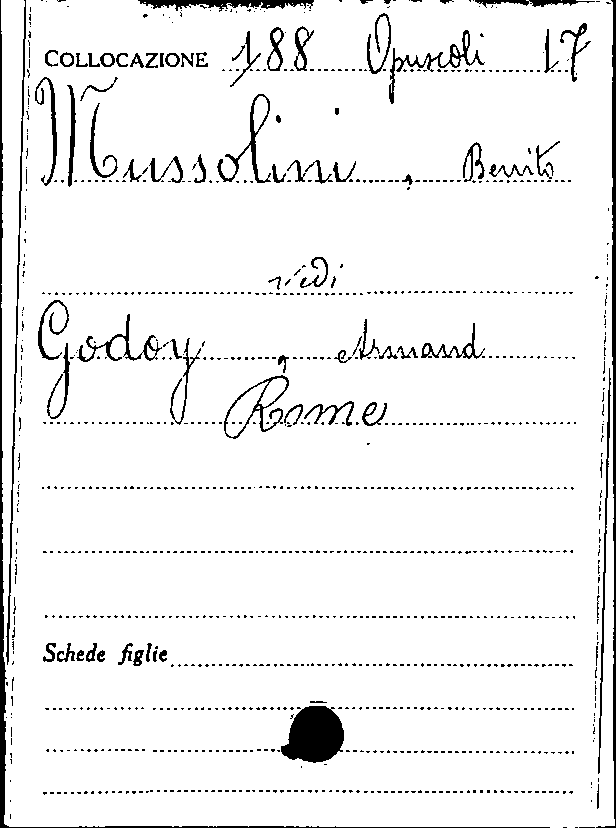 COLLOCAZIONE 188 Opuscoli 17
Mussolini, Benito
vedi
Godoy, Armand
Rome
Schede figlie